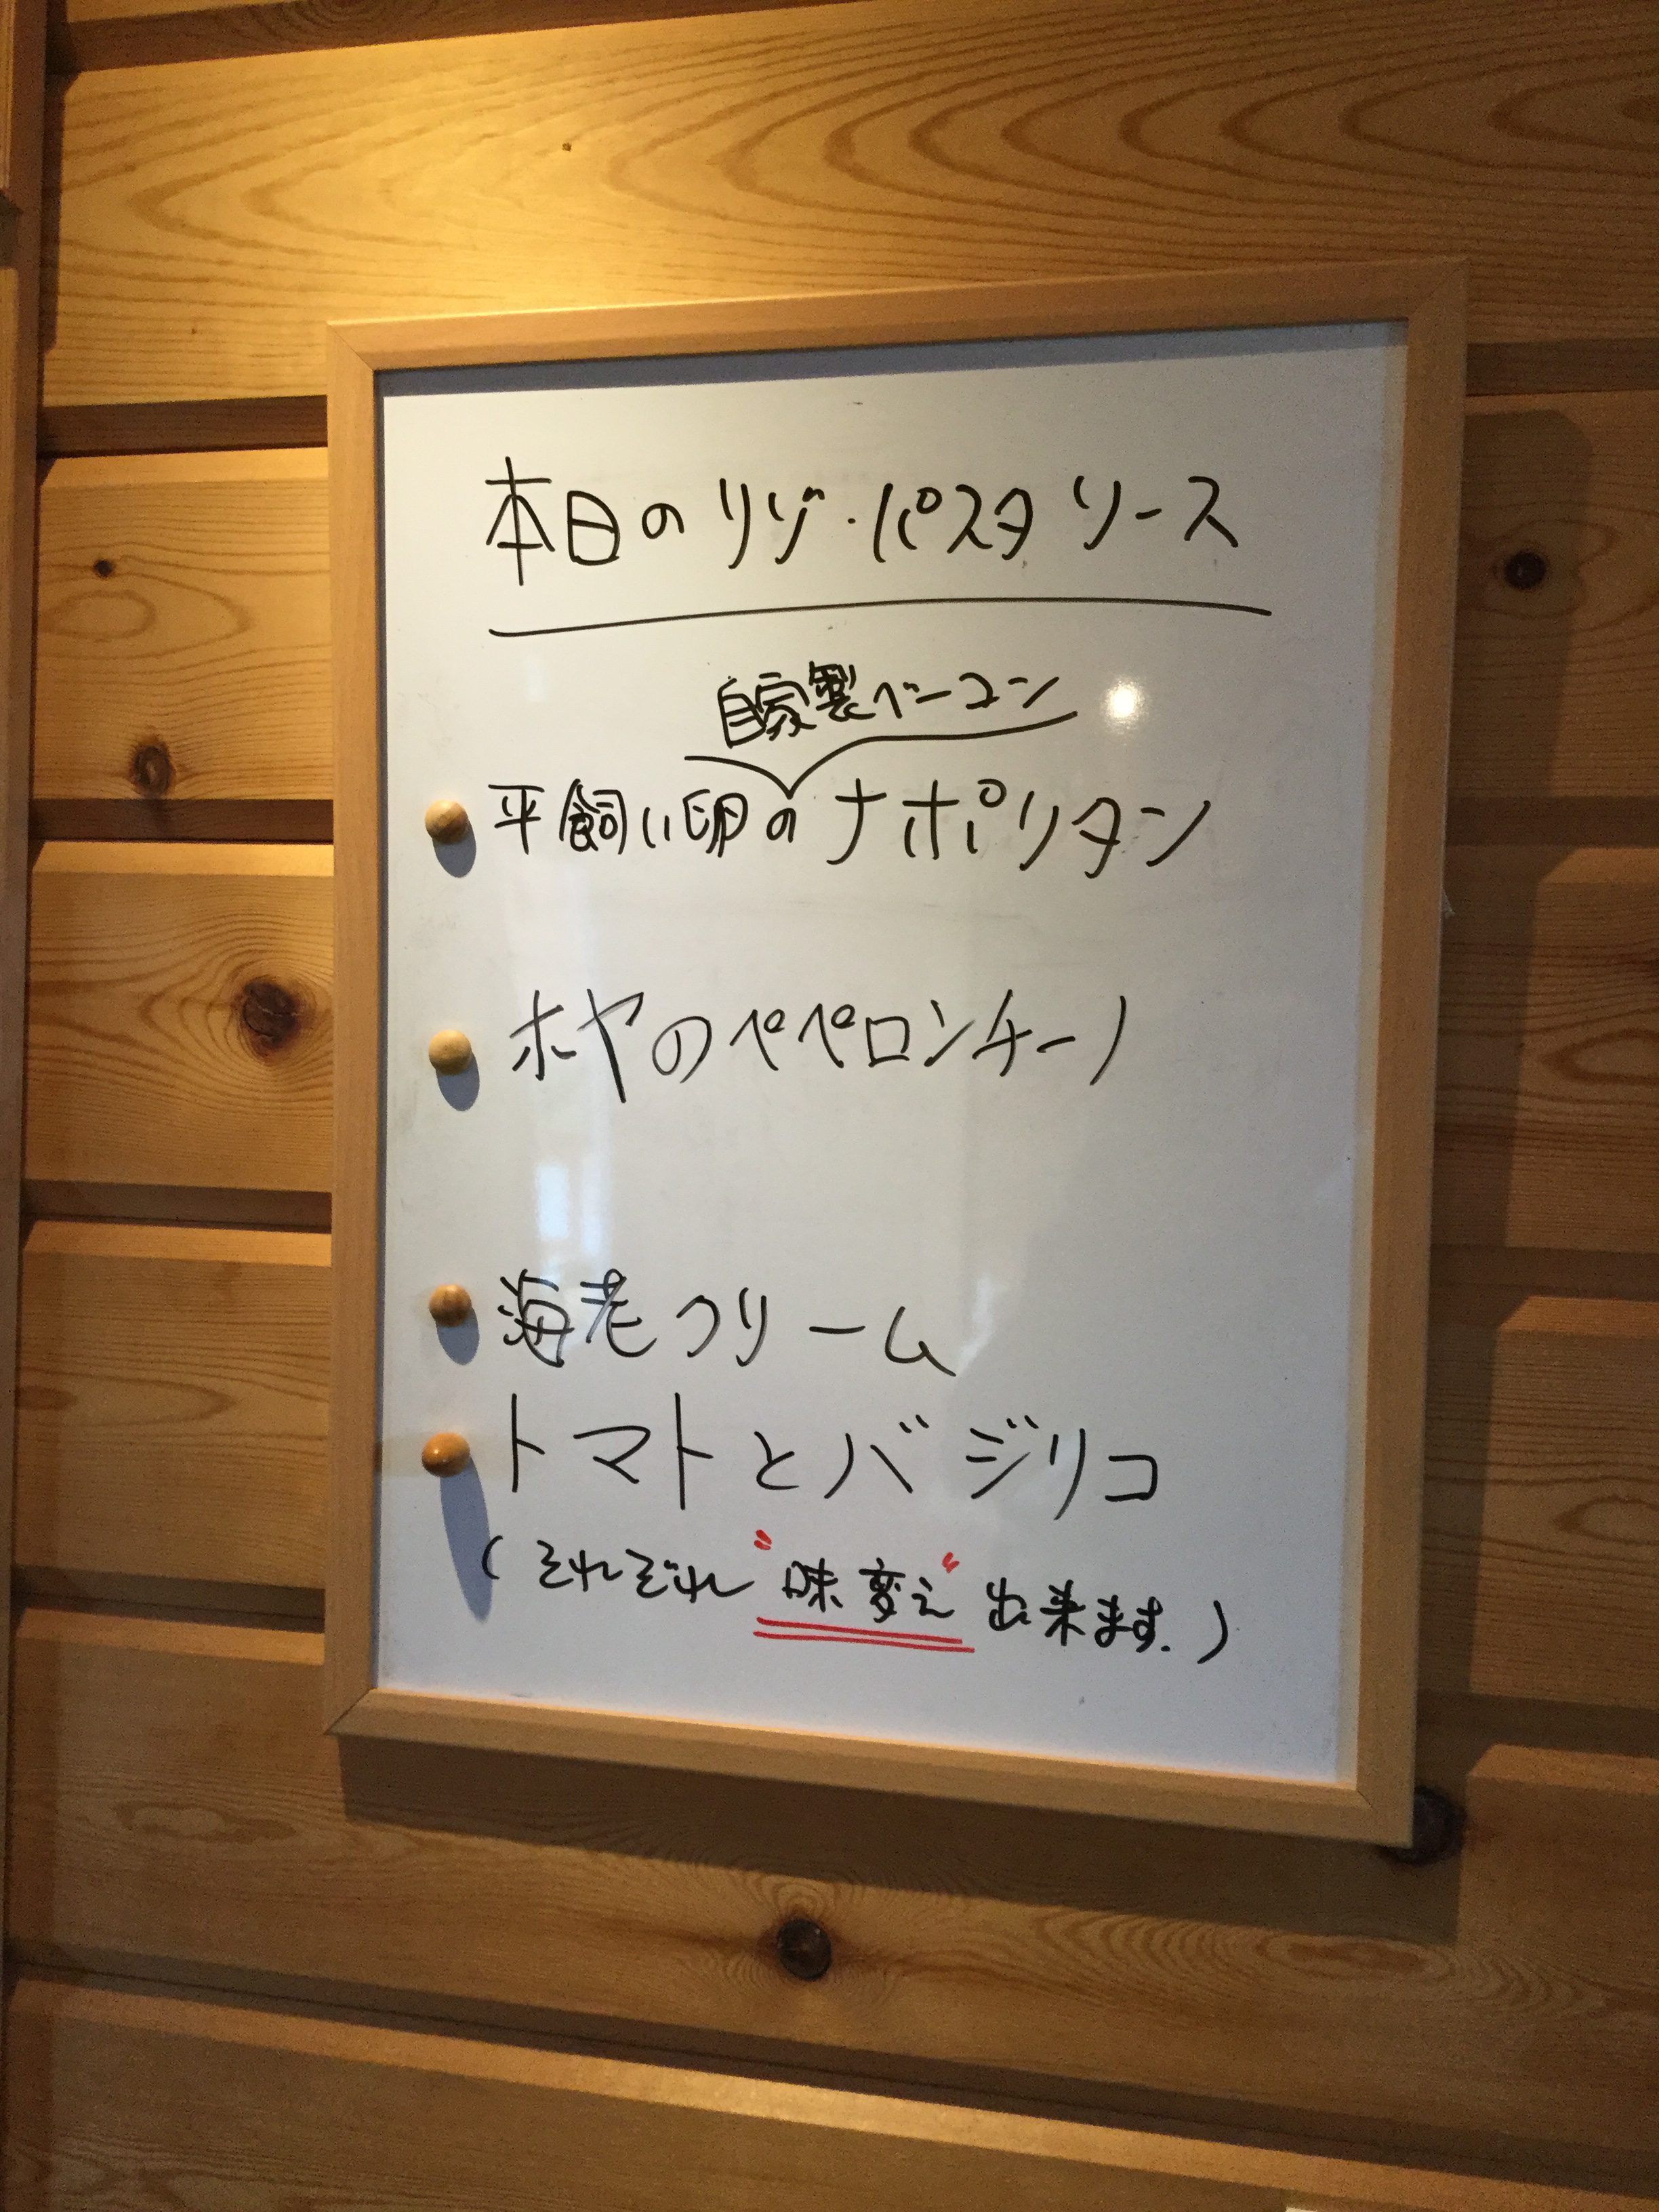 本日のリゾ・パスタソース
自家製ベーコン
平飼い卵のナポリタン
ホヤのペペロンチーノ
海老クリーム
トマトとバジリコ
(それぞれ"味変え"出来ます.)